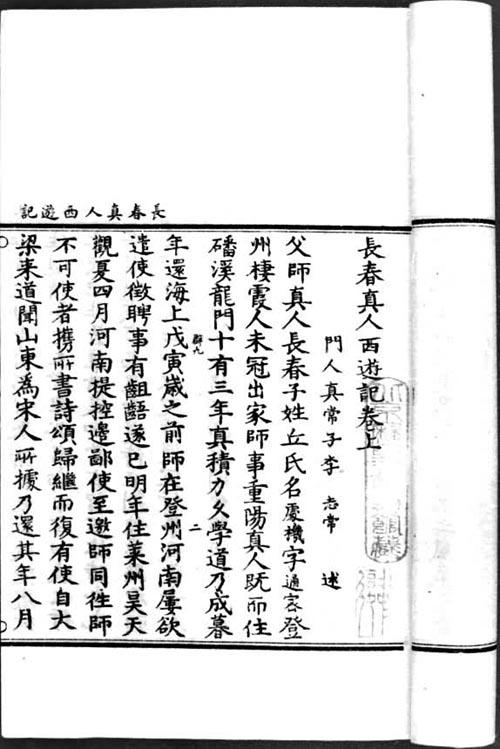 長春真人西遊記
長春真人西遊記卷上
門人真常子李志常述
父師真人長春子姓丘氏名處機字通宻登
州棲霞人未冠出家師事重陽真人既而住
磻溪龍門十有三年真積力久學道乃成暮
年還海上戊寅歲之前師在登州河南屢欲
遣使徵聘事有齟齬遂已明年住萊州昊天
觀夏四月河南提控邊鄙使至邀師同往師
不可使者携所書詩頌歸繼而復有使自大
梁来道聞山東為宋人所據乃還其年八月
二